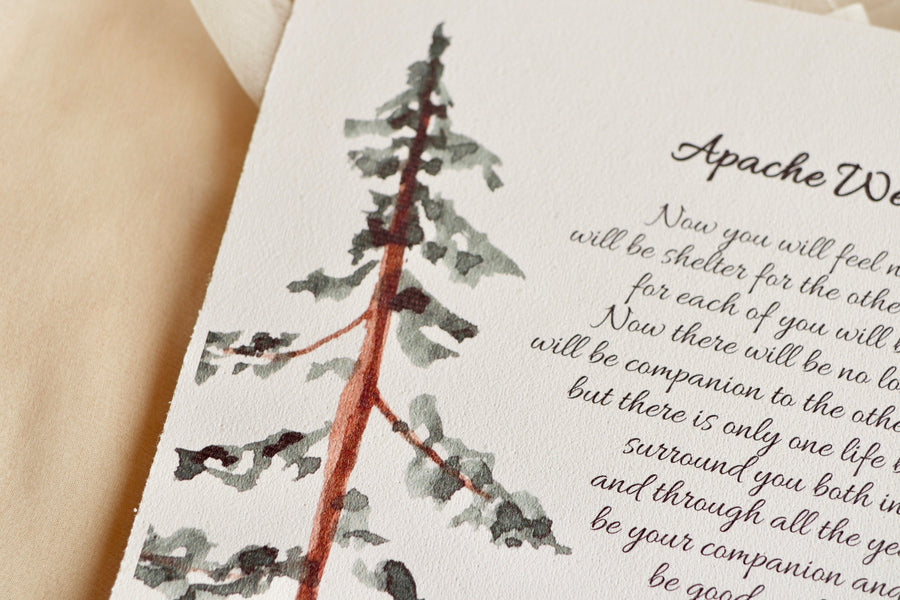 Apache We
Now you will feel n
will be shelter for the othe
for each of you will b
Now there will be no lo
will be companion to the othe
but there is only one life b
surround you both in
and through all the ye
be your companion and
be good